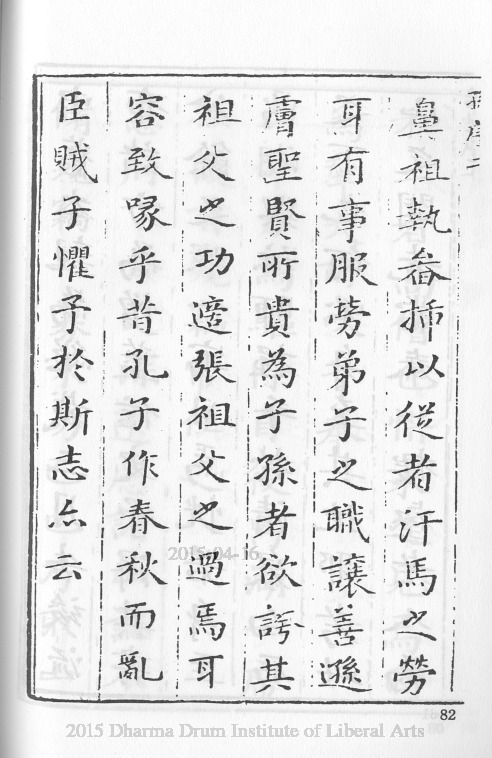 鼻祖執畚揷以從者汗馬之勞
耳有事服勞弟子之職讓善遜
膚聖賢所貴為子孫者欲誇其
祖父之功適張祖父之過焉耳
容致喙乎昔孔子作春秋而亂
臣賊子懼予於斯志亦云
82
2015-04-16
2015 Dharma Drum Institute of Liberal Arts